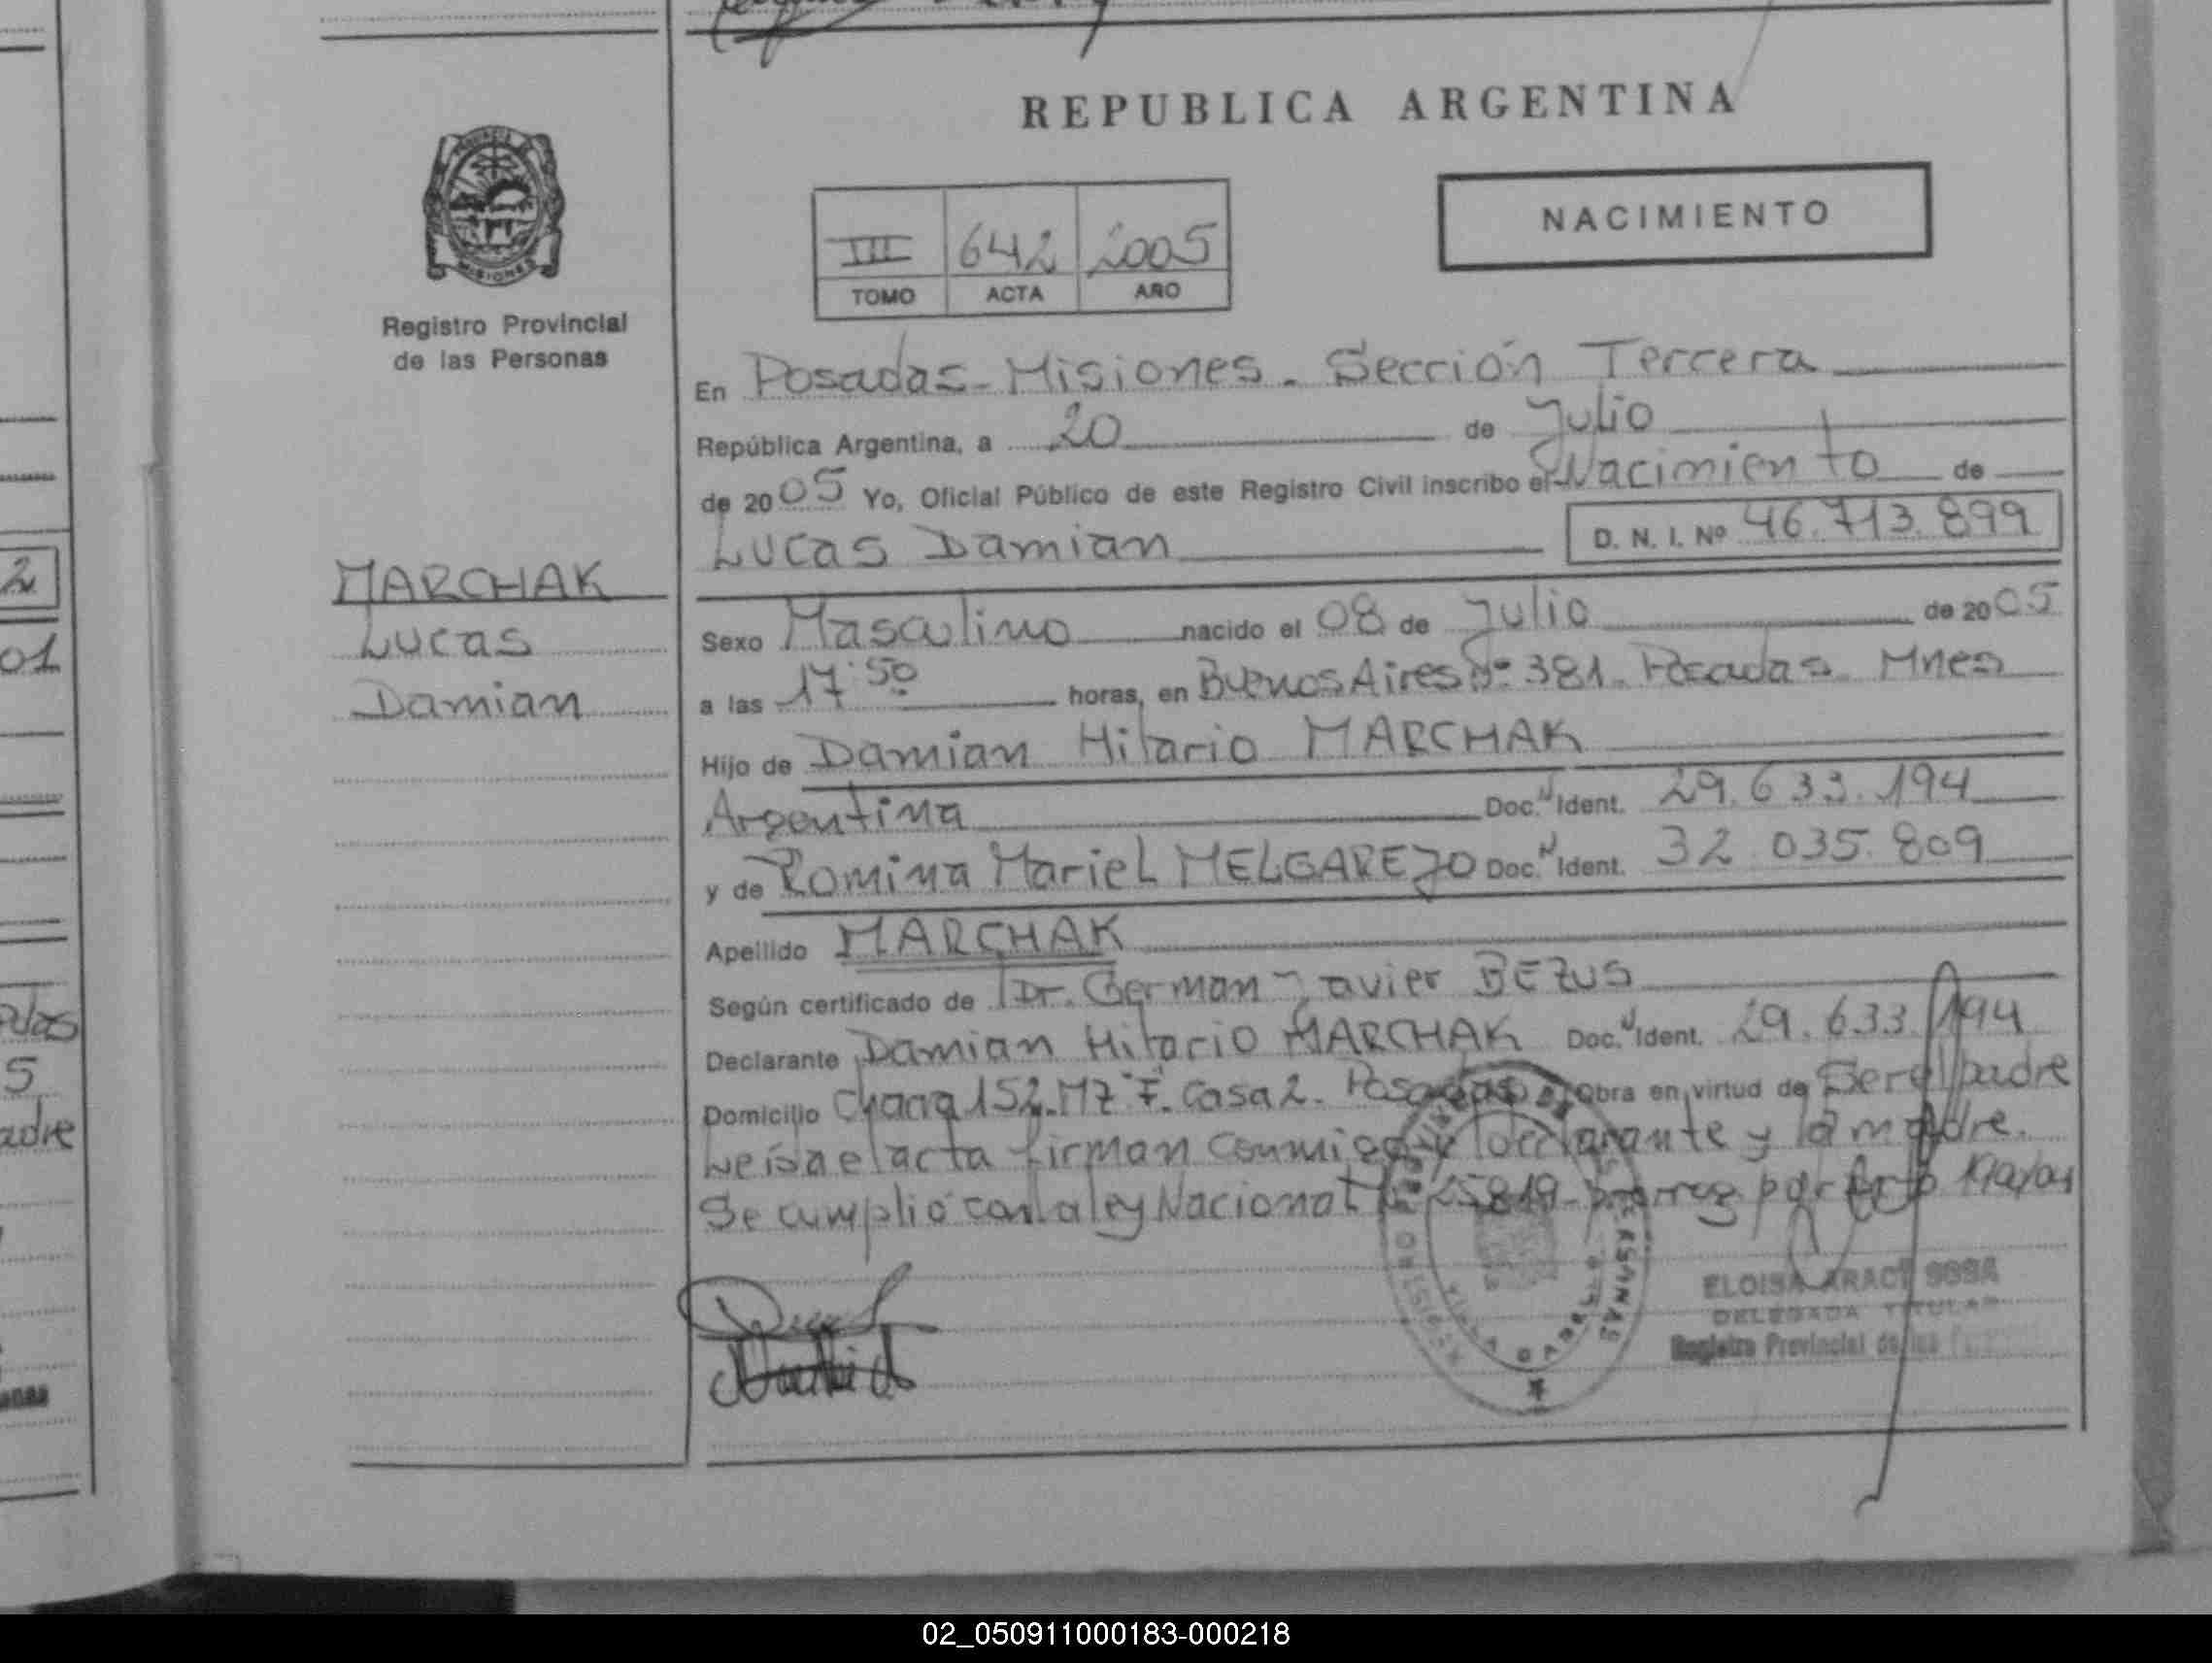 REPUBLICA ARGENTINA
PROVINCIA DE
MISIONES
Registro Provincial
de las Personas
III 642 2005
TOMO ACTA AÑO
NACIMIENTO
En Posadas - Misiones. Sección Tercera
República Argentina, a 20 de Julio
de 2005 Yo, Oficial Público de este Registro Civil inscribo el Nacimiento de
Lucas Damian D. N. I. Nº 46.713.899
MARCHAK
Lucas
Damian
Sexo Masculino nacido el 08 de Julio de 2005
a las 17:50 horas, en Buenos Aires Nº 381. Posadas Mnes
Hijo de Damian Hilario MARCHAK
Argentina Doc. N Ident. 29.633.194
y de Romina Mariel MELGAREJO Doc. N Ident. 32.035.809
Apellido MARCHAK
Según certificado de Dr. German Javier BEZUS
Declarante Damian Hilario MARCHAK Doc. N Ident. 29.633.194
Domicilio Chacra 152. Mz "F". Casa 2. Posadas Obra en virtud de Ser el padre
Leída el acta firman conmigo el declarante y la madre.
Se cumplió con la ley Nacional Nº 25819
ELOISA ARACI SOSA
DELEGADA TITULAR
Registro Provincial de las
2
01
5
adre
02_050911000183-000218